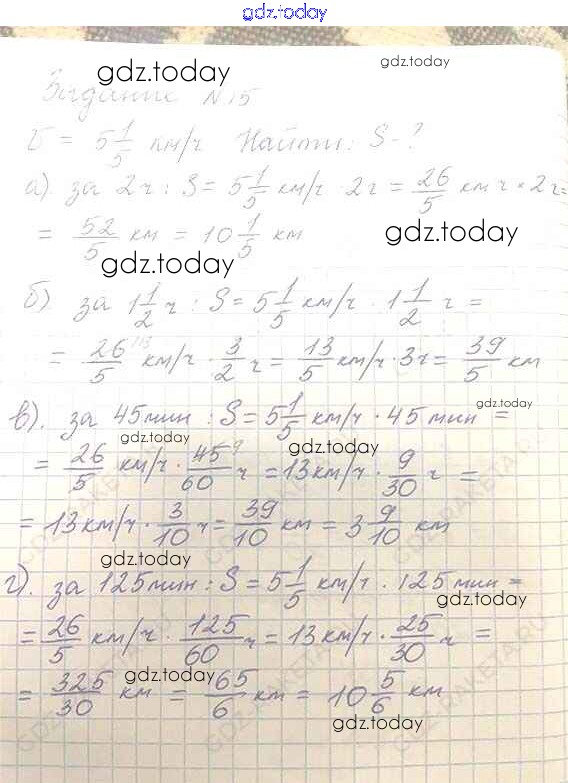 gdz.today
gdz.today
gdz.today
Задание N15
υ = 5 1/5 км/ч Найти: S-?
а) за 2ч : S = 5 1/5 км/ч 2ч = 26/5 км ч · 2ч =
= 52/5 км = 10 1/5 км
gdz.today
gdz.today
б) за 1 1/2 ч : S = 5 1/5 км/ч · 1 1/2 ч =
= 26/5 км/ч · 3/2 ч = 13/5 км/ч · 3ч = 39/5 км
в). за 45мин : S = 5 1/5 км/ч · 45мин =
gdz.today
gdz.today
gdz.today
= 26/5 км/ч · 45/60 ч = 13км/ч · 9/30 ч =
= 13км/ч · 3/10 ч = 39/10 км = 3 9/10 км
gdz.today
г). за 125мин : S = 5 1/5 км/ч · 125мин =
gdz.today
= 26/5 км/ч · 125/60 ч = 13км/ч · 25/30 ч =
gdz.today
= 325/30 км = 65/6 км = 10 5/6 км
gdz.today
GDZ-RAKETA.RU
GDZ-RAKETA.RU
GDZ-RAKETA.RU